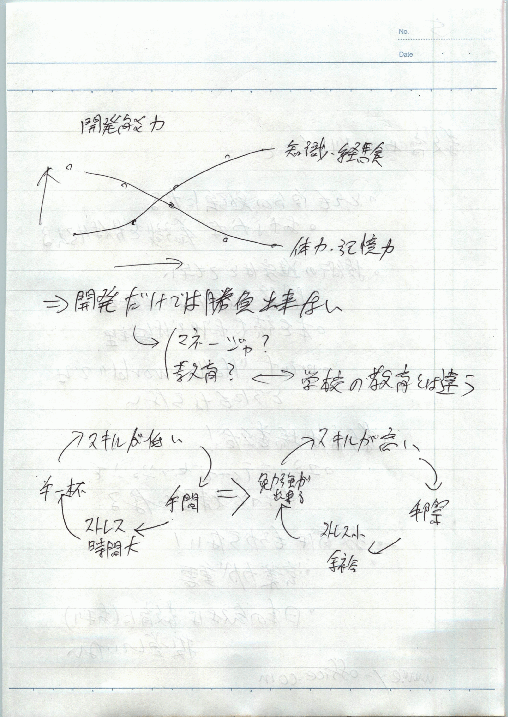 No.
Date
開発能力
知識・経験
体力・記憶力
⇒開発だけでは勝負出来ない
マネージャ?
教育? ↔ 学校の教育とは違う
スキルが低い
手間
ストレス
時間大
手一杯
⇒
スキルが高い
手際
ストレス小
余裕
勉強が
出来る